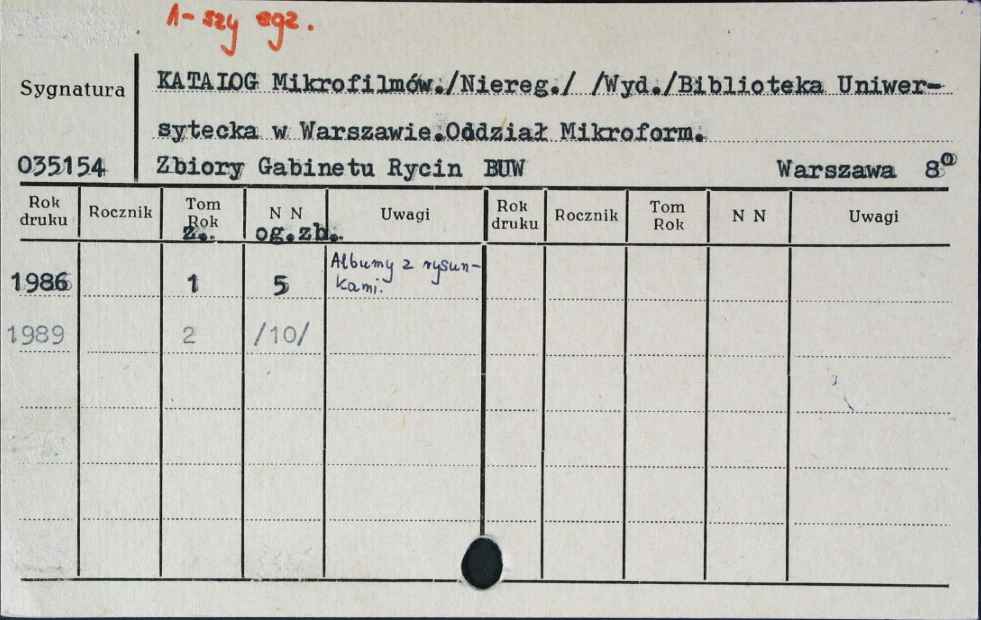 1-szy egz.
Sygnatura
KATALOG Mikrofilmów./Niereg./ /Wyd./Biblioteka Uniwer-
sytecka w Warszawie.Oddział Mikroform.
035154 Zbiory Gabinetu Rycin BUW Warszawa 8°
Rok druku Rocznik Tom Rok N N Uwagi Rok druku Rocznik Tom Rok N N Uwagi
z. og.zb.
1986 1 5 Albumy z rysun-
kami.
1989 2 /10/